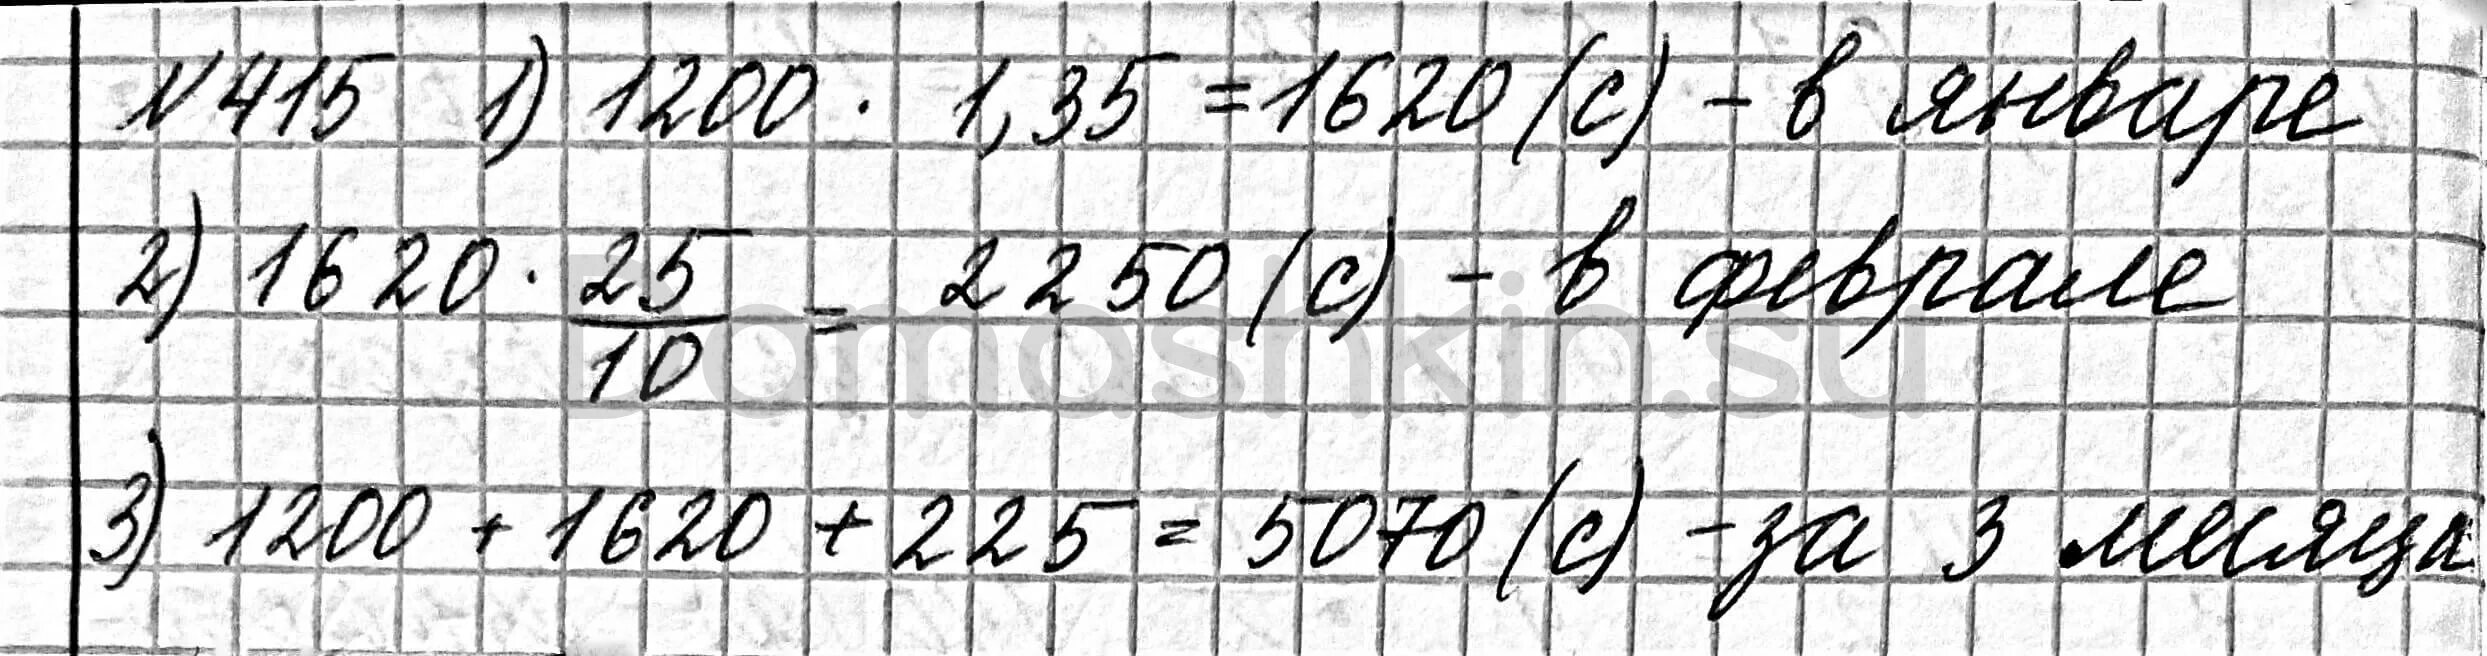 №415 1) 1200 · 1,35 = 1620 (с) - в январе
2) 1620 · 25/10 = 2250 (с) - в феврале
3) 1200 + 1620 + 225 = 5070 (с) - за 3 месяца
Domashkin.su